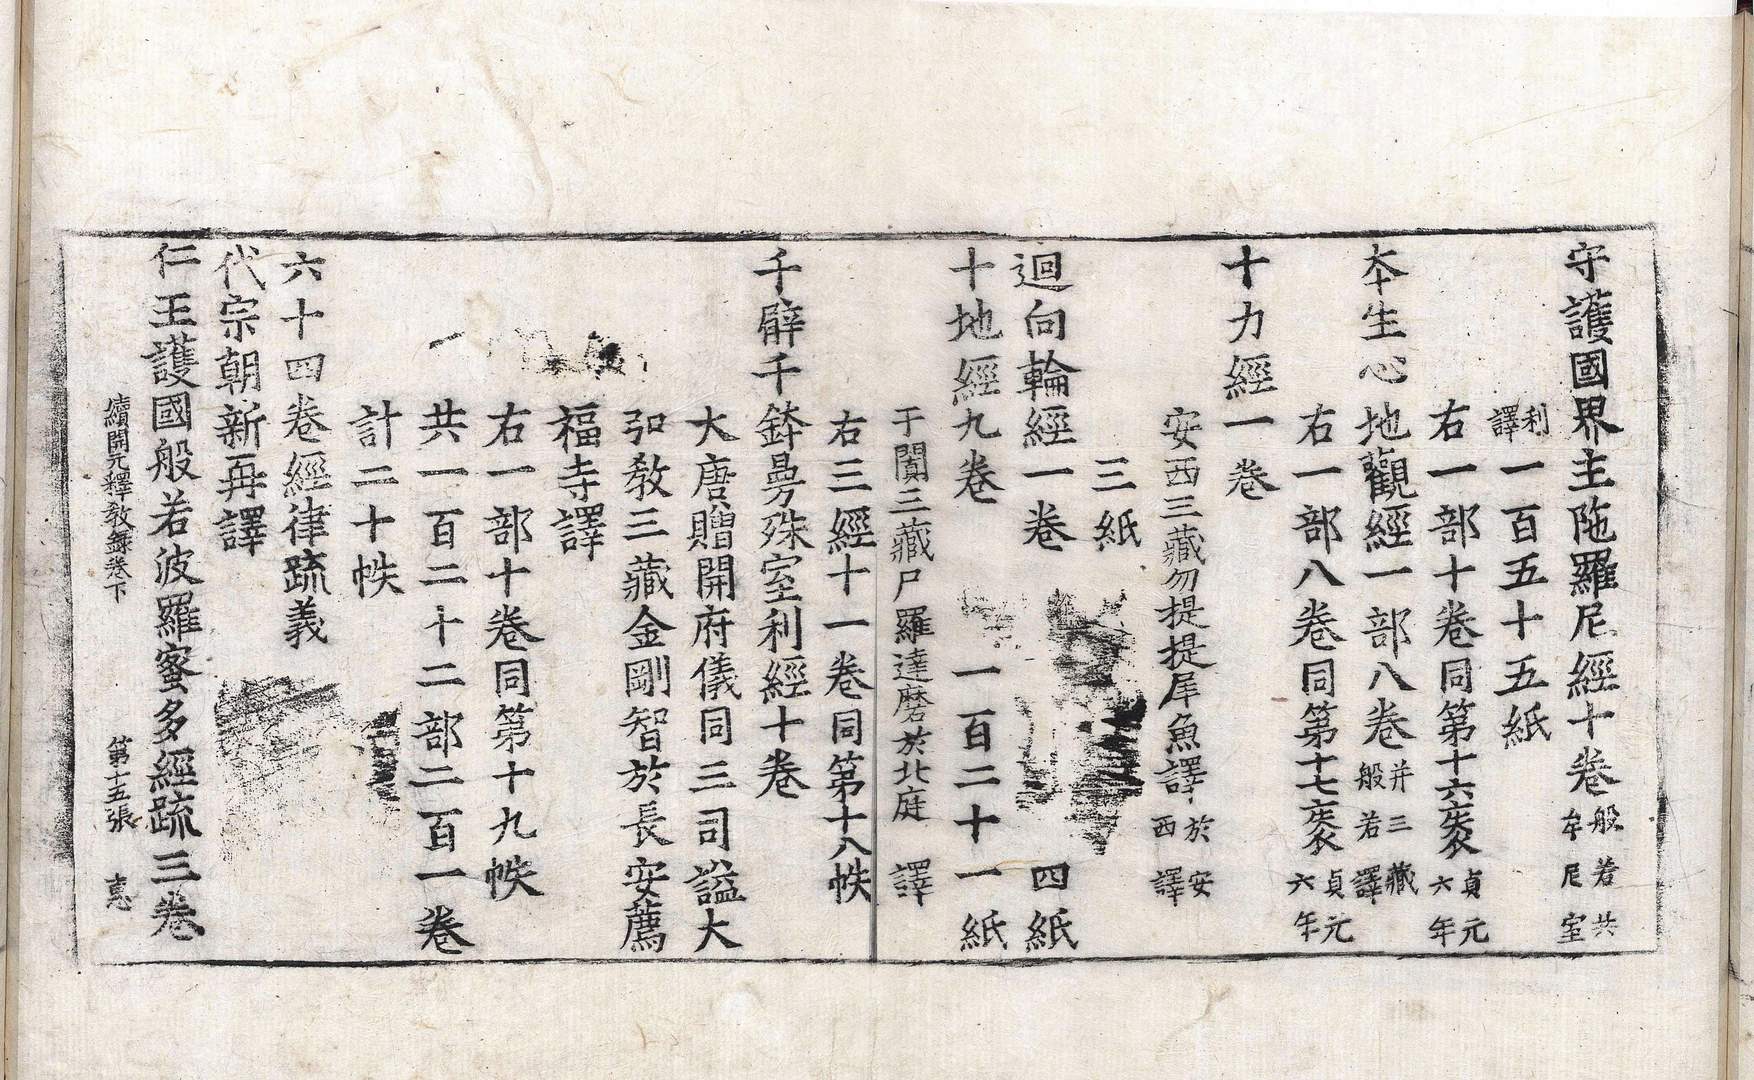 守護國界主陁羅尼經十卷般若共牟尼室
利譯一百五十五紙
右一部十卷同第十六袠貞元六年
本生心地觀經一部八卷并三藏般若譯
右一部八卷同第十七袠貞元六年
十力經一卷
安西三藏勿提提犀魚譯於安西譯
三紙
迴向輪經一卷 四紙
十地經九卷 一百二十一紙
于闐三藏尸羅達磨於北庭譯
右三經十一卷同第十八帙
千臂千鉢曼殊室利經十卷
大唐贈開府儀同三司謚大
弘教三藏金剛智於長安薦
福寺譯
右一部十卷同第十九帙
共一百二十二部二百一卷
計二十帙
六十四卷經律疏義
代宗朝新再譯
仁王護國般若波羅蜜多經疏三卷
續開元釋教錄卷下 第十五張